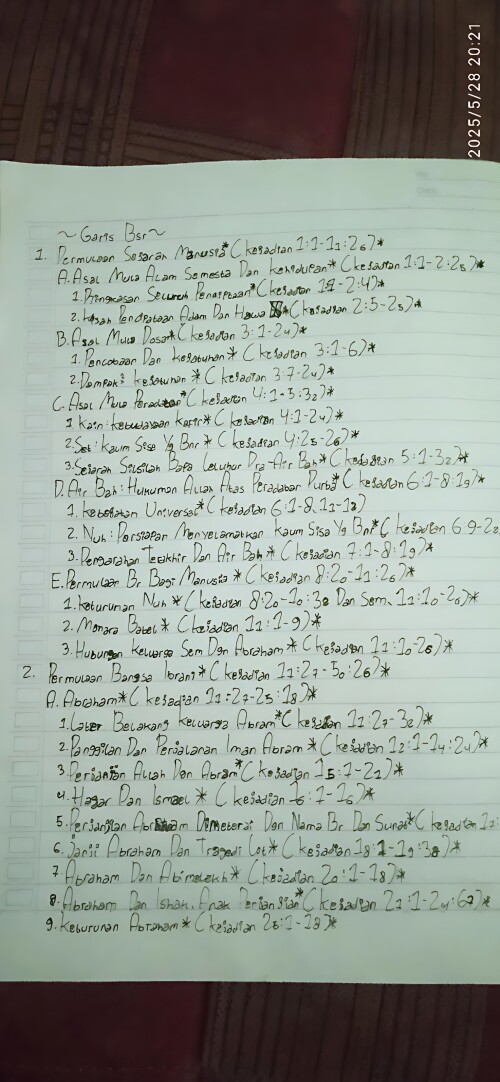 2025/5/28 20:21
~Garis Bsr~
1. Permulaan Sejarah Manusia* (kejadian 1:1-11:26)*
A. Asal Mula Alam Semesta Dan kehidupan* (kejadian 1:1-2:25)*
1. Ringkasan Seluruh Penciptaan* (kejadian 1:1-2:4)*
2. kisah Penciptaan Adam Dan Hawa * (kejadian 2:5-25)*
B. Asal Mula Dosa* (kejadian 3:1-24)*
1. Pencobaan Dan kejatuhan* (kejadian 3:1-6)*
2. Dampak² kejatuhan* (kejadian 3:7-24)*
C. Asal Mula Peradaban* (kejadian 4:1-5:32)*
1 kain: kebudayaan kafir* (kejadian 4:1-24)*
2. Set: kaum Sisa Yg Bnr* (kejadian 4:25-26)*
3. Sejarah Silsilah Bapa Leluhur Pra-Air Bah* (kejadian 5:1-32)*
D. Air Bah: Hukuman Allah Atas Peradaban Purba* (kejadian 6:1-8:19)*
1. kebejatan Universal* (kejadian 6:1-8,11-12)
2. Nuh: Persiapan Menyelamatkan kaum Sisa Yg Bnr* (kejadian 6:9-22
3. Pengarahan Terakhir Dan Air Bah* (kejadian 7:1-8:19)*
E. Permulaan Br Bagi Manusia* (kejadian 8:20-11:26)*
1. keturunan Nuh* (kejadian 8:20-10:32 Dan Sem, 11:10-26)*
2. Menara Babel* (kejadian 11:1-9)*
3. Hubungan keluarga Sem Dgn Abraham* (kejadian 11:10-26)*
2. Permulaan Bangsa Ibrani* (kejadian 11:27-50:26)*
A. Abraham* (kejadian 11:27-25:18)*
1. Latar Belakang keluarga Abram* (kejadian 11:27-32)*
2. Panggilan Dan Perjalanan Iman Abram* (kejadian 12:1-14:24)*
3. Perjanjian Allah Dgn Abram* (kejadian 15:1-21)*
4. Hagar Dan Ismael* (kejadian 16:1-16)*
5. Perjanjian Abraham Dimeterai Dgn Nama Br Dan Sunat* (kejadian
6. Janji Abraham Dan Tragedi Lot* (kejadian 18:1-19:38)*
7. Abraham Dan Abimelekh* (kejadian 20:1-18)*
8. Abraham Dan Ishak, Anak Perjanjian* (kejadian 21:1-24:67)*
9. keturunan Abraham* (kejadian 25:1-18)*